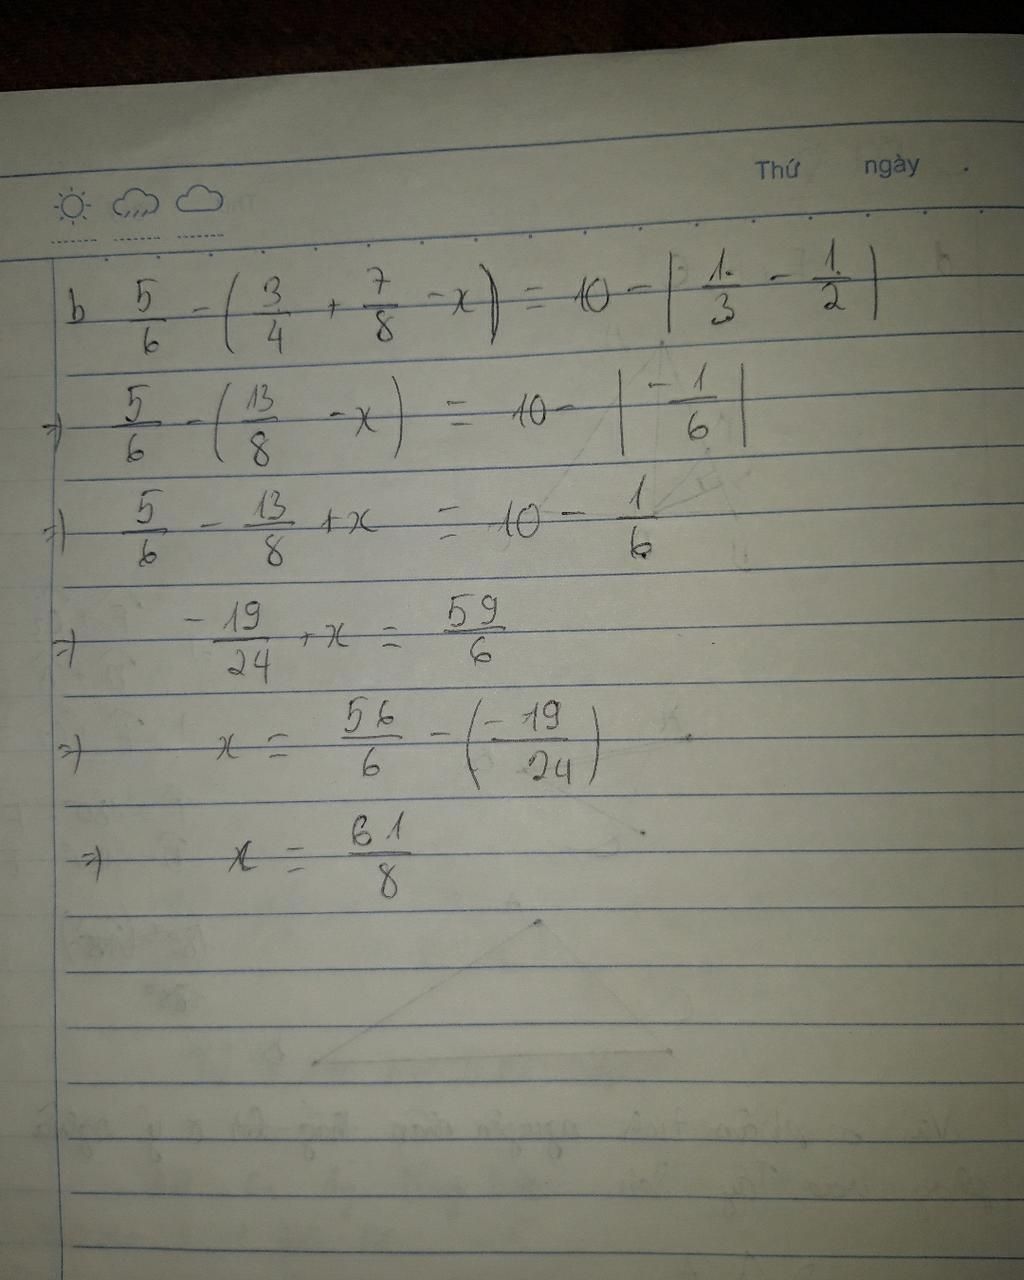 Thứ ngày .
b 5/6 - (3/4 + 7/8 - x) = 10 - |1/3 - 1/2|
=) 5/6 - (13/8 - x) = 10 - |-1/6|
=) 5/6 - 13/8 + x = 10 - 1/6
=) -19/24 + x = 59/6
=) x = 56/6 - (-19/24)
=) x = 61/8